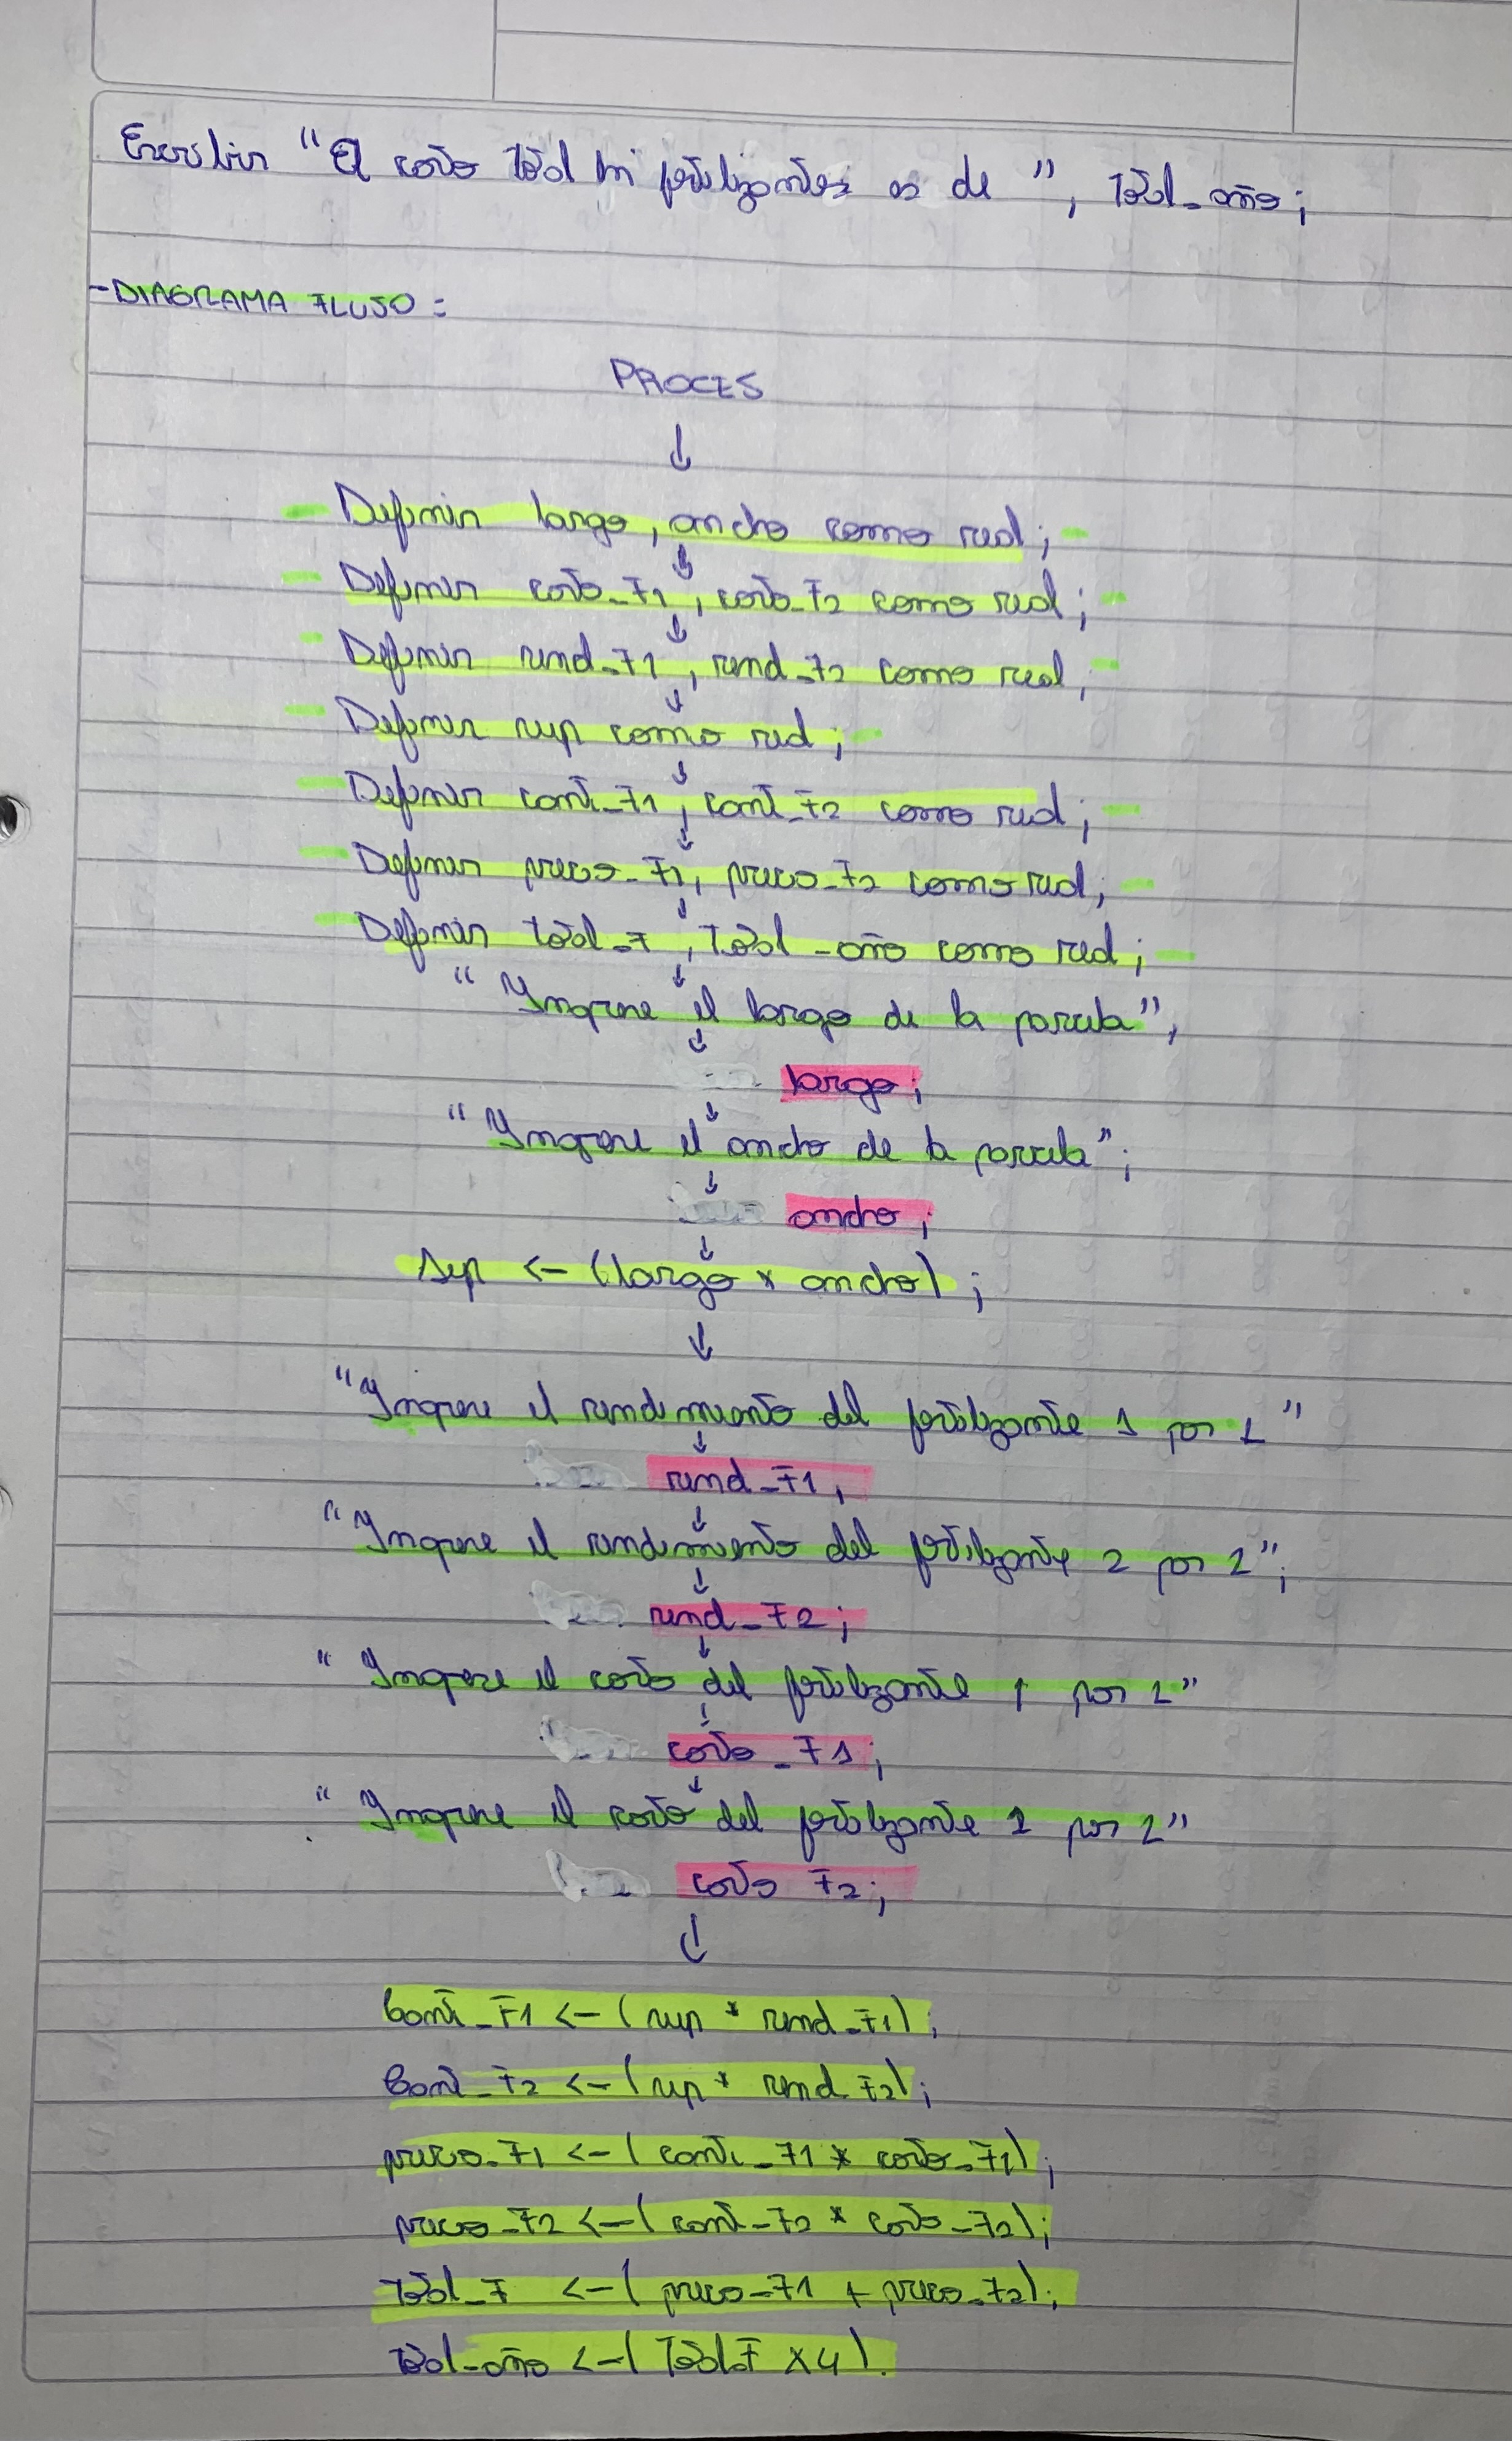 Escribir "El costo total en fertilizantes es de ", total_año;
-DIAGRAMA FLUJO:
PROCES
Definir largo, ancho como real;
Definir costo_F1, costo_F2 como real;
Definir rend_F1, rend_F2 como real;
Definir sup como real;
Definir cant_F1, cant_F2 como real;
Definir precio_F1, precio_F2 como real;
Definir total_F, total_año como real;
"Ingrese el largo de la parcela",
largo;
"Ingrese el ancho de la parcela";
ancho;
Sup <- (largo * ancho);
"Ingrese el rendimiento del fertilizante 1 por L"
rend_F1;
"Ingrese el rendimiento del fertilizante 2 por L";
rend_F2;
"Ingrese el costo del fertilizante 1 por L"
costo_F1;
"Ingrese el costo del fertilizante 2 por L"
costo F2;
Cant_F1 <- (sup * rend_F1);
Cant_F2 <- (sup * rend_F2);
precio_F1 <- (cant_F1 * costo_F1);
precio_F2 <- (cant_F2 * costo_F2);
total_F <- (precio_F1 + precio_F2);
total_año <- (total_F x 4).